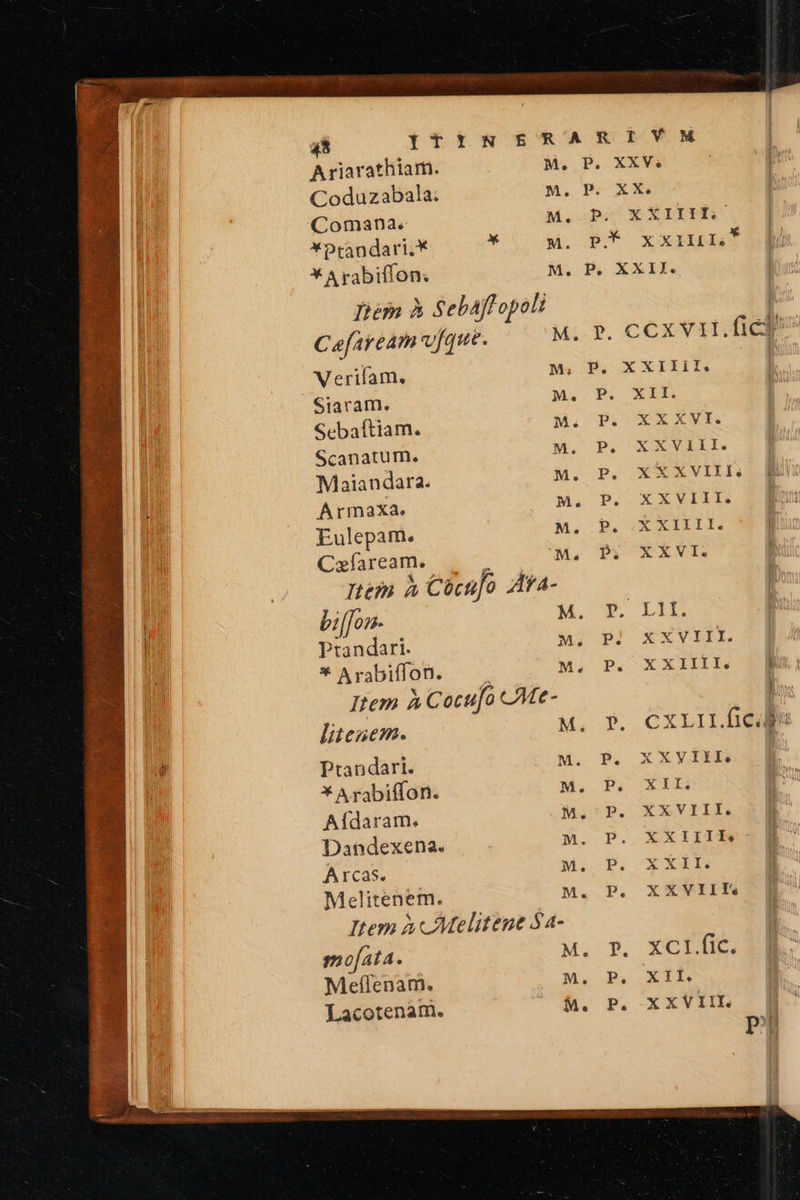 48 ITINERARIVM
Ariarathiam. M. P. XXV.
Coduzabala. M. P. XX.
Comana. M. P. XXIIII.
*Ptandari.* * M. P.* XXIIII.*
*Arabiſſon. M. P. XXII.
Item à Sebaſtopoli
Cæſaream vſque. M. P. CCXVII. ſic.
Veriſam. M. P. XXIIII.
Siaram. M. P. XII.
Sebaſtiam. M. P. XXXVI.
Scanatum. M. P. XXVIII.
Maiandara. M. P. XXXVIII.
Armaxa. M. P. XXVIII.
Eulepam. M. P. XXIIII.
Cæſaream. M. P. XXVI.
Item à Cocuſo Ara-
biſſon. M. P. LII.
Ptandari. M. P. XXVIII.
* Arabiſſon. M. P. XXIIII.
Item à Cocuſo Me-
litenem. M. P. CXLII. ſic.
Ptandari. M. P. XXVIII.
*Arabiſſon. M. P. XII.
Aſdaram. M. P. XXVIII.
Dandexena. M. P. XXIIII.
Arcas. M. P. XXII.
Melitenem. M. P. XXVIII.
Item à Melitene Sa-
moſata. M. P. XCI. ſic.
Meſſenam. M. P. XII.
Lacotenam. M. P. XXVIII.